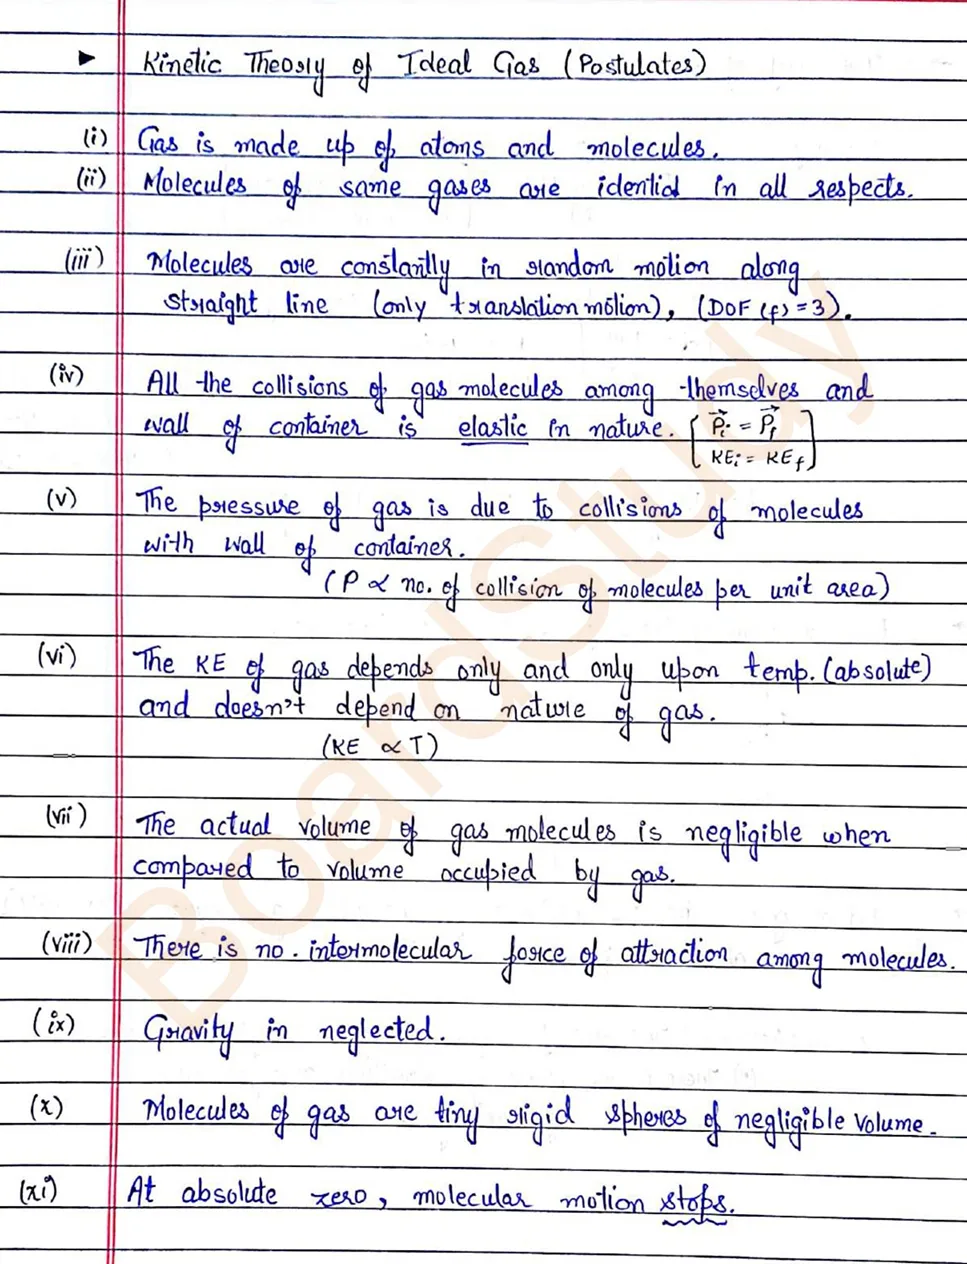 ▶ Kinetic Theory of Ideal Gas (Postulates)
(i) Gas is made up of atoms and molecules.
(ii) Molecules of same gases are identicl in all respects.
(iii) Molecules are constantly in random motion along
straight line (only translation motion), (DOF (f) = 3).
(iv) All the collisions of gas molecules among themselves and
wall of container is elastic in nature. [P⃗i = P⃗f
KEi = KEf]
(v) The pressure of gas is due to collisions of molecules
with wall of container.
(P ∝ no. of collision of molecules per unit area)
(vi) The KE of gas depends only and only upon temp. (absolute)
and doesn't depend on nature of gas.
(KE ∝ T)
(vii) The actual volume of gas molecules is negligible when
compared to volume occupied by gas.
(viii) There is no. intermolecular force of attraction among molecules.
(ix) Gravity in neglected.
(x) Molecules of gas are tiny rigid spheres of negligible volume.
(xi) At absolute zero, molecular motion stops.
BoardStudy